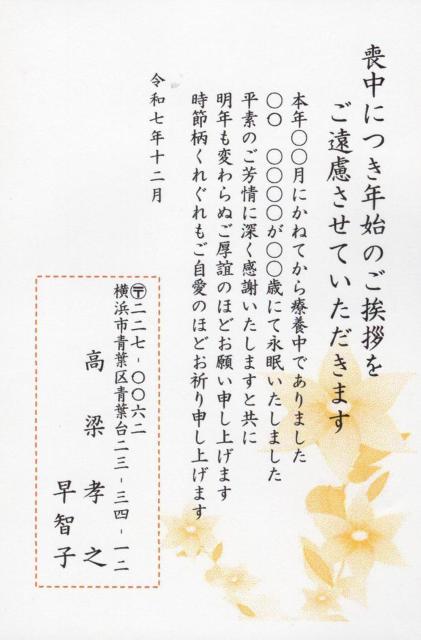 喪中につき年始のご挨拶を
ご遠慮させていただきます
本年〇〇月にかねてから療養中でありました
〇〇　〇〇〇〇が〇〇歳にて永眠いたしました
平素のご芳情に深く感謝いたしますと共に
明年も変わらぬご厚誼のほどお願い申し上げます
時節柄くれぐれもご自愛のほどお祈り申し上げます
令和七年十二月
〒二二七-〇〇六二
横浜市青葉区青葉台二三-三四-一二
高梁　孝之
早智子